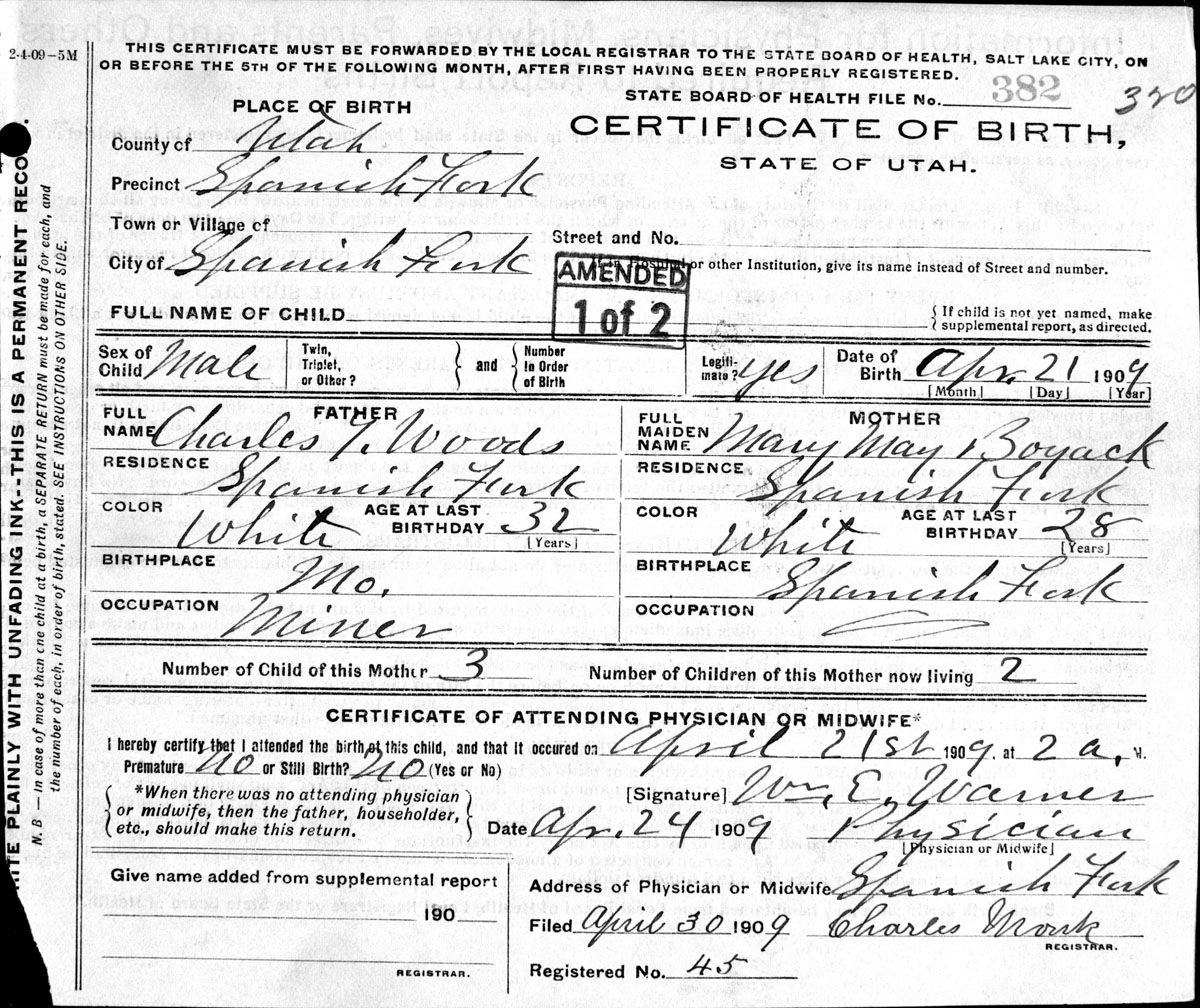 2-4-09-5M
THIS CERTIFICATE MUST BE FORWARDED BY THE LOCAL REGISTRAR TO THE STATE BOARD OF HEALTH, SALT LAKE CITY, ON
OR BEFORE THE 5TH OF THE FOLLOWING MONTH, AFTER FIRST HAVING BEEN PROPERLY REGISTERED.
STATE BOARD OF HEALTH FILE No. 382
320
PLACE OF BIRTH
CERTIFICATE OF BIRTH,
STATE OF UTAH.
County of Utah
Precinct Spanish Fork
Town or Village of
Street and No.
City of Spanish Fork
If in Hospital or other Institution, give its name instead of Street and number.
AMENDED
1 of 2
FULL NAME OF CHILD
If child is not yet named, make
supplemental report, as directed.
Sex of Child Male
Twin, Triplet, or Other?
and
Number In Order of Birth
Legiti-mate? yes
Date of Birth Apr. 21 1909
[Month] [Day] [Year]
FATHER
FULL NAME Charles T. Woods
RESIDENCE Spanish Fork
COLOR White AGE AT LAST BIRTHDAY 32
[Years]
BIRTHPLACE Mo.
OCCUPATION Miner
MOTHER
FULL MAIDEN NAME Mary May Boyack
RESIDENCE Spanish Fork
COLOR White AGE AT LAST BIRTHDAY 28
[Years]
BIRTHPLACE Spanish Fork
OCCUPATION
Number of Child of this Mother 3 Number of Children of this Mother now living 2
CERTIFICATE OF ATTENDING PHYSICIAN OR MIDWIFE*
I hereby certify that I attended the birth of this child, and that it occured on April 21st 1909, at 2 a. M.
Premature no or Still Birth? no (Yes or No)
*When there was no attending physician
or midwife, then the father, householder,
etc., should make this return.
[Signature] Wm. E. Warner
Date Apr. 24 1909 Physician
[Physician or Midwife]
Give name added from supplemental report
190
REGISTRAR.
Address of Physician or Midwife Spanish Fork
Filed April 30 1909 Charles Monk
REGISTRAR.
Registered No. 45
WRITE PLAINLY WITH UNFADING INK-THIS IS A PERMANENT RECORD.
N. B. — In case of more than one child at birth, a SEPARATE RETURN must be made for each, and
the number of each, in order of birth, stated. SEE INSTRUCTIONS ON OTHER SIDE.